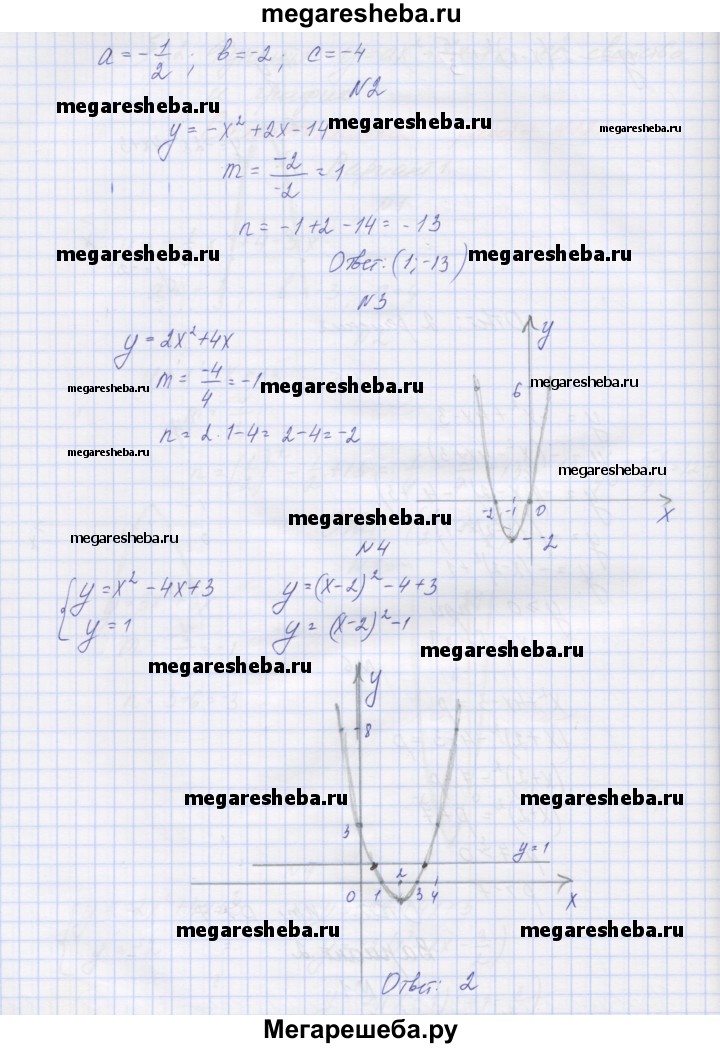 megaresheba.ru
a = -1/2 ; b = -2 ; c = -4
N2
megaresheba.ru
megaresheba.ru
megaresheba.ru
y = -x² + 2x - 14
m = -2/-2 = 1
n = -1 + 2 - 14 = -13
megaresheba.ru
Ответ: (1; -13)
megaresheba.ru
N3
y = 2x² + 4x
y
6
megaresheba.ru
megaresheba.ru
m = -4/4 = -1
megaresheba.ru
n = 2 · 1 - 4 = 2 - 4 = -2
megaresheba.ru
megaresheba.ru
-2 -1 0 x
megaresheba.ru
-2
megaresheba.ru
N4
{ y = x² - 4x + 3
y = 1
y = (x-2)² - 4 + 3
y = (x-2)² - 1
megaresheba.ru
megaresheba.ru
y
8
megaresheba.ru
megaresheba.ru
3
y = 1
0 1 2 3 4 x
megaresheba.ru
megaresheba.ru
Ответ: 2
Мегарешеба.ру